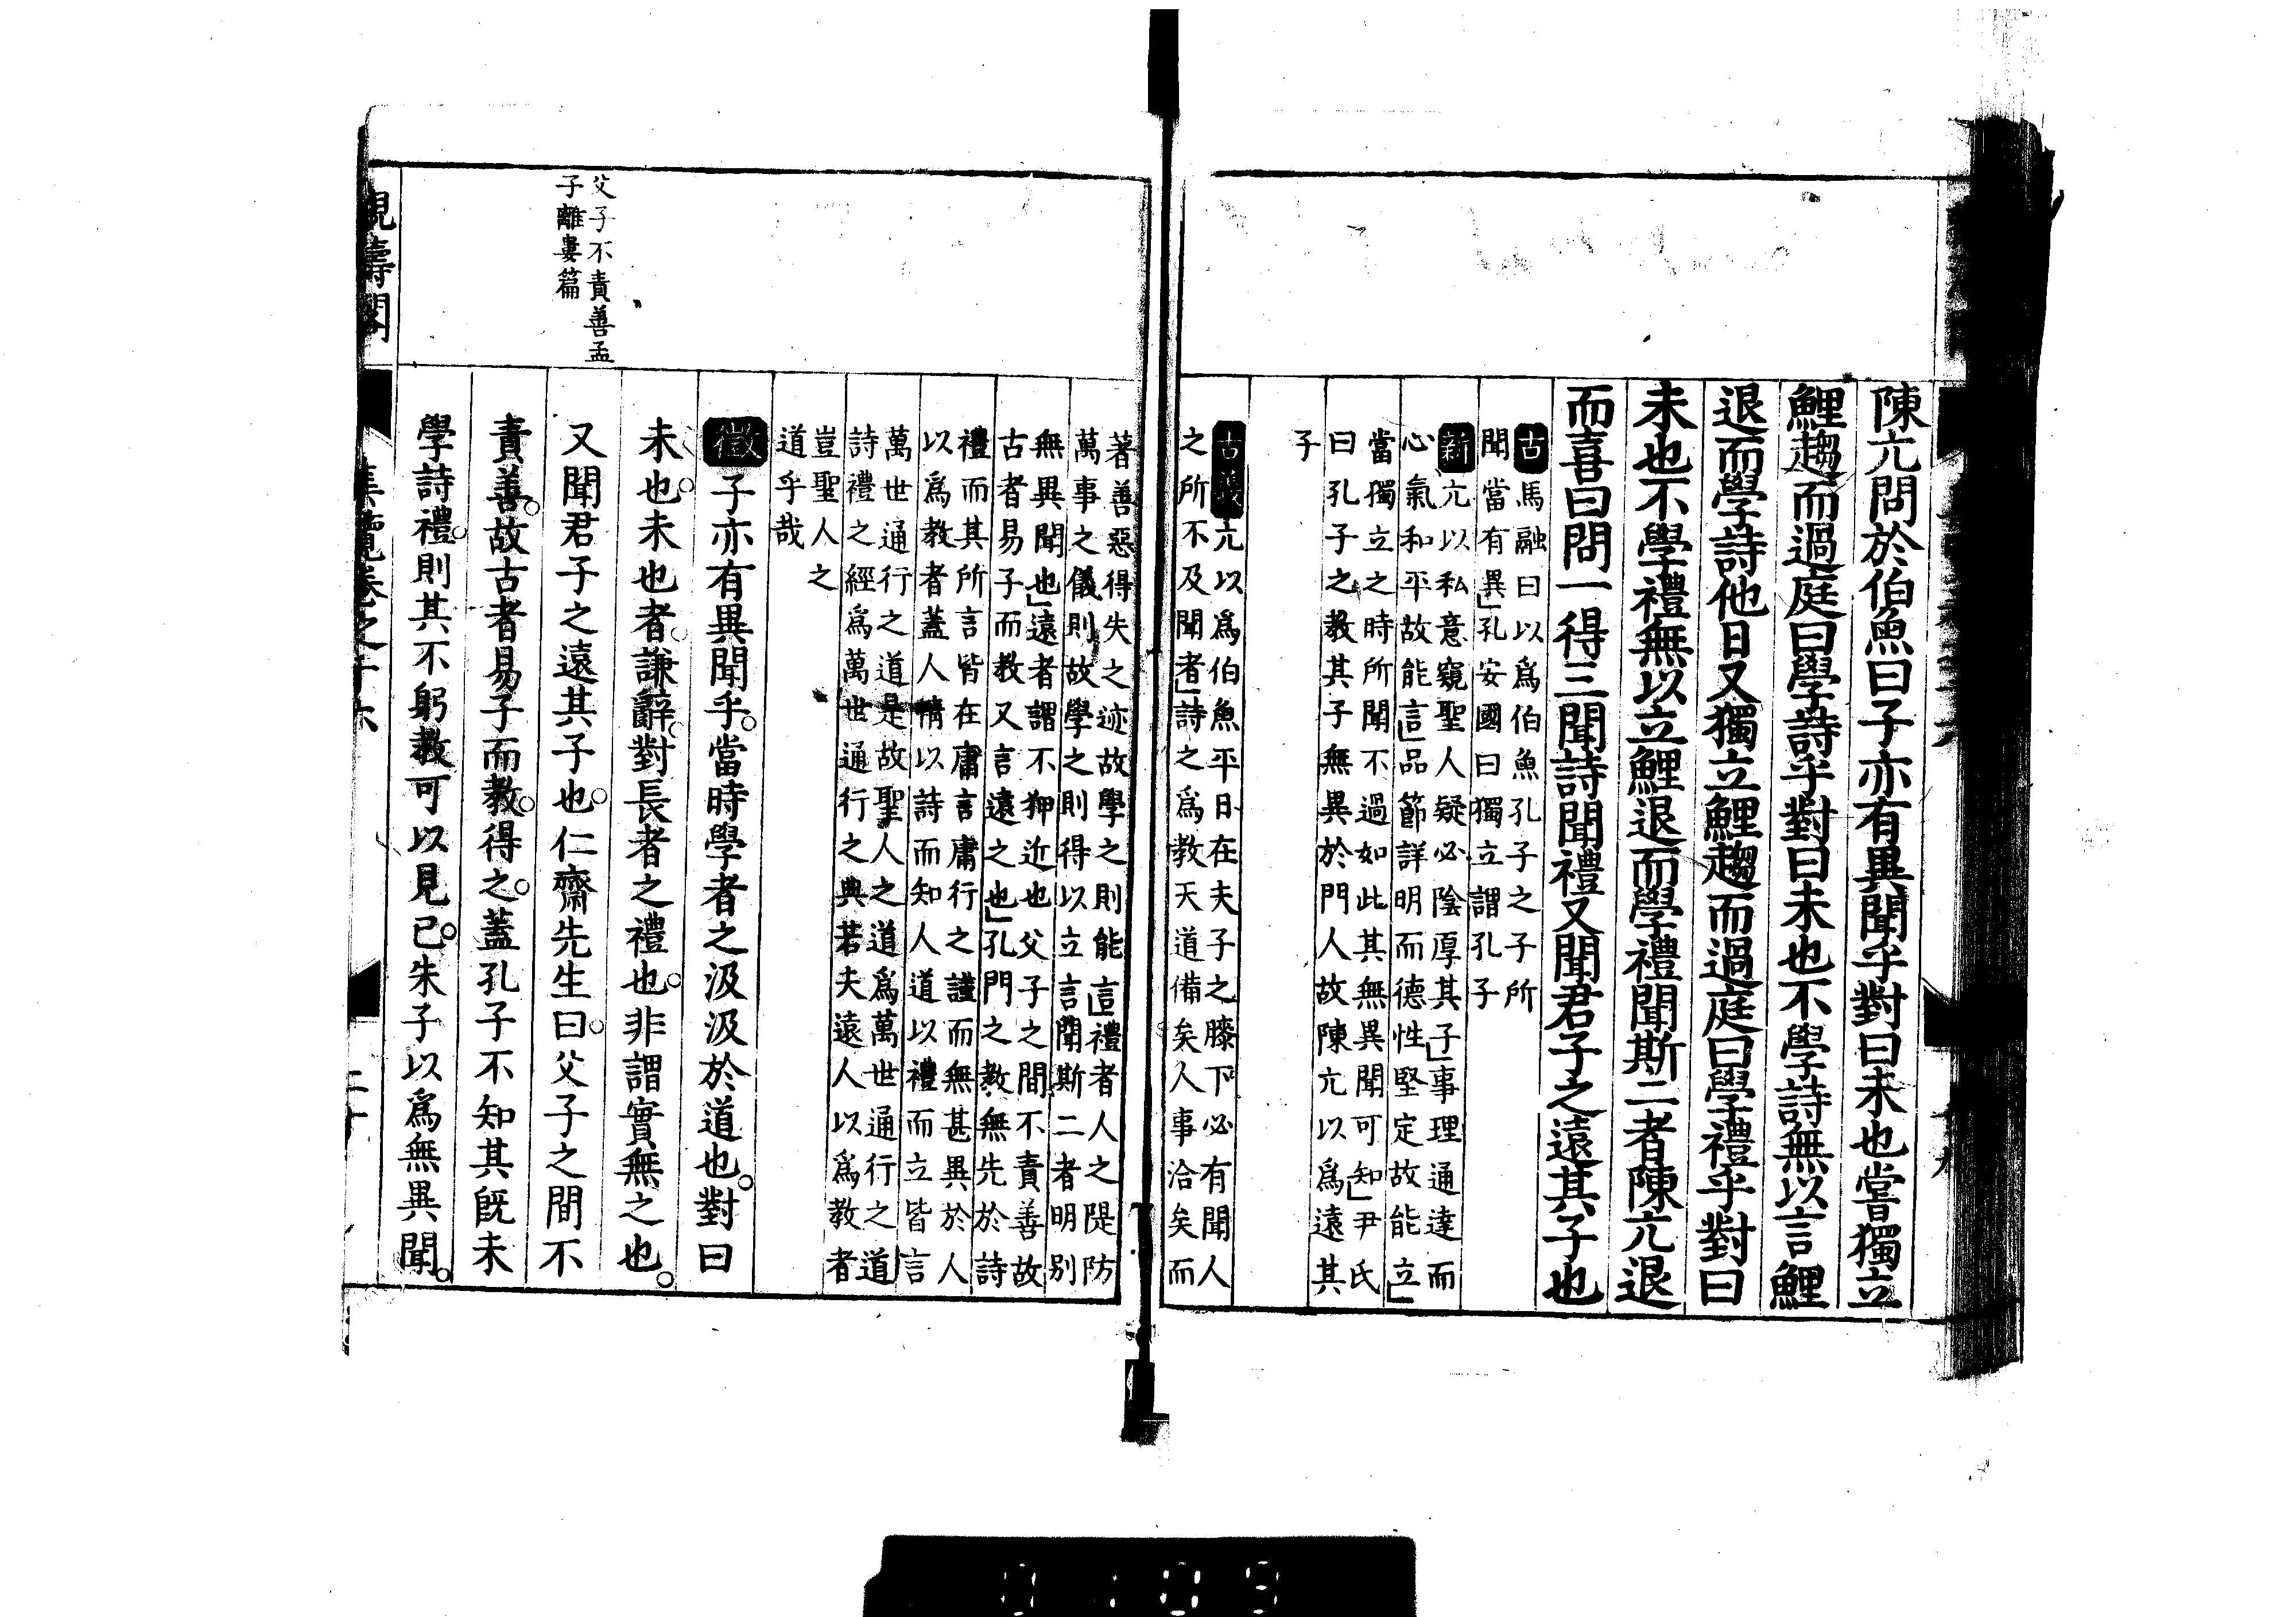 陳亢問於伯魚曰子亦有異聞乎對曰未也嘗獨立
鯉趨而過庭曰學詩乎對曰未也不學詩無以言鯉
退而學詩他日又獨立鯉趨而過庭曰學禮乎對曰
未也不學禮無以立鯉退而學禮聞斯二者陳亢退
而喜曰問一得三聞詩聞禮又聞君子之遠其子也
古馬融曰以爲伯魚孔子之子所
聞當有異孔安國曰獨立謂孔子
新亢以私意窺聖人疑必陰厚其子事理通達而
心氣和平故能言品節詳明而德性堅定故能立
當獨立之時所聞不過如此其無異聞可知尹氏
曰孔子之教其子無異於門人故陳亢以爲遠其
子
古義亢以爲伯魚平日在夫子之膝下必有聞人
之所不及聞者詩之爲教天道備矣人事洽矣而
著善惡得失之迹故學之則能言禮者人之隄防
萬事之儀則故學之則得以立言聞斯二者明别
無異聞也遠者謂不狎近也父子之間不責善故
古者易子而教又言遠之也孔門之教無先於詩
禮而其所言皆在庸言庸行之謹而無甚異於人
以爲教者蓋人情以詩而知人道以禮而立皆言
萬世通行之道是故聖人之道爲萬世通行之道
詩禮之經爲萬世通行之典若夫遠人以爲教者
豈聖人之
道乎哉
徵子亦有異聞乎當時學者之汲汲於道也對曰
未也未也者謙辭對長者之禮也非謂實無之也
又聞君子之遠其子也仁齋先生曰父子之間不
責善故古者易子而教得之蓋孔子不知其旣未
學詩禮則其不躬教可以見已朱子以爲無異聞
父子不責善孟
子離婁篇
觀濤閣
集覽卷之十六
二十
0109